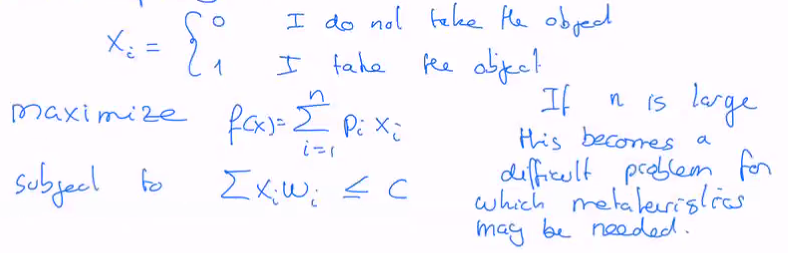 xᵢ = { 0 I do not take the object
1 I take the object
maximize f(x) = ∑ᵢ₌₁ⁿ pᵢ xᵢ
subject to ∑ xᵢ wᵢ ≤ C
If n is large
this becomes a
difficult problem for
which metaheuristics
may be needed.